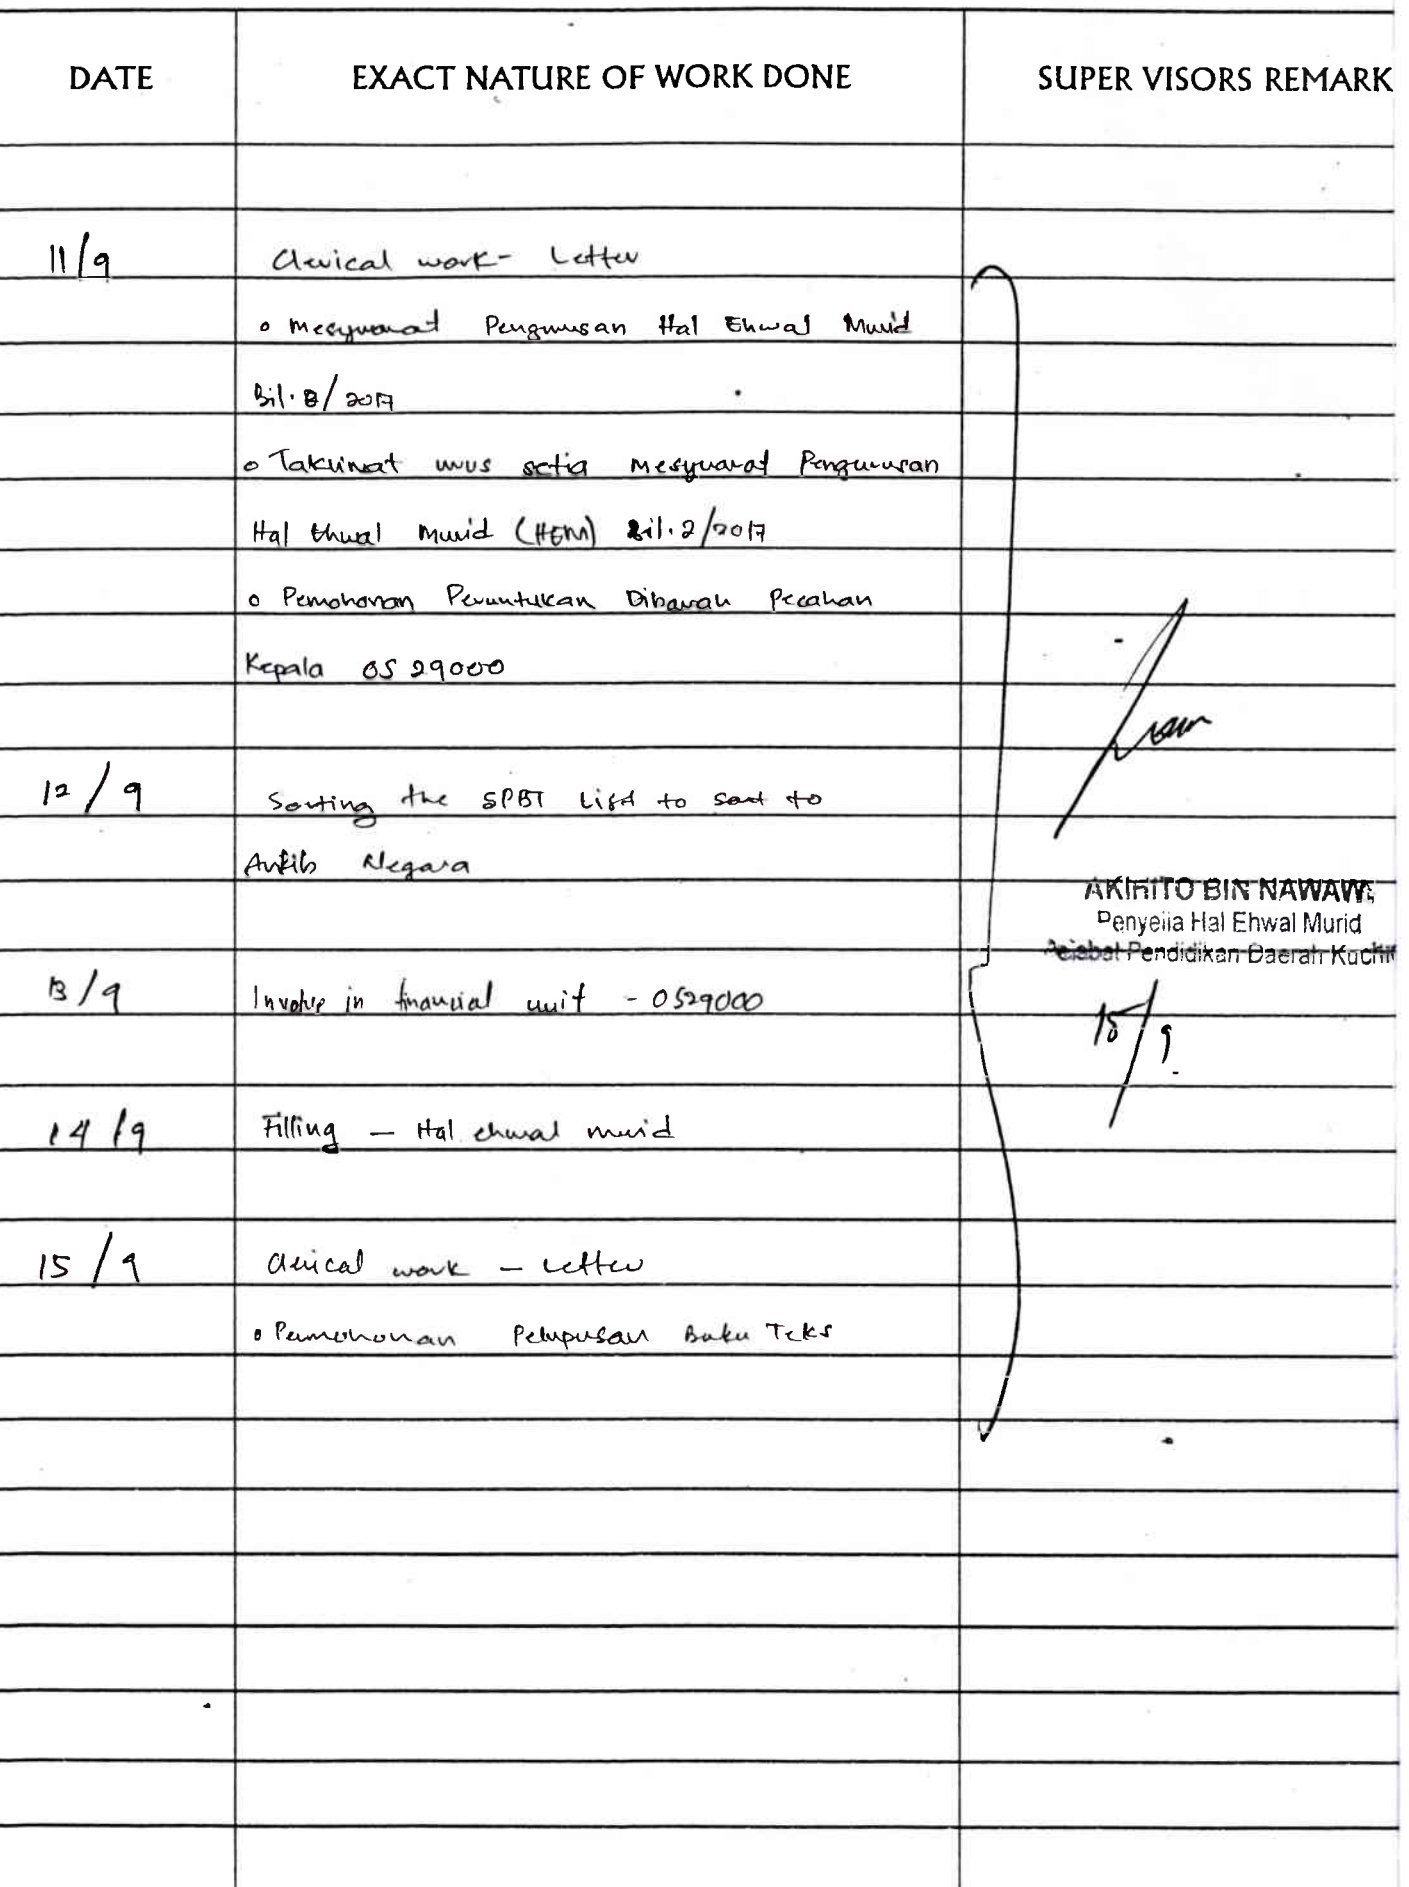 DATE EXACT NATURE OF WORK DONE SUPER VISORS REMARK
11/9 Clerical work - Letter
o Mesyuarat Pengurusan Hal Ehwal Murid
Bil. 8/2017
o Taklimat urus setia Mesyuarat Pengurusan
Hal Ehwal Murid (HEM) Bil. 2/2017
o Pemohonan Peruntukan Dibawah Pecahan
Kepala OS 29000
12/9 Sorting the SPBT List to sent to
Arkib Negara
AKIHITO BIN NAWAWI
Penyelia Hal Ehwal Murid
Pejabat Pendidikan Daerah Kuchi
13/9 Involve in financial unit - OS29000
15/9.
14/9 Filling - Hal ehwal murid
15/9 Clerical work - Letter
• Permohonan Pelupusan Buku Teks